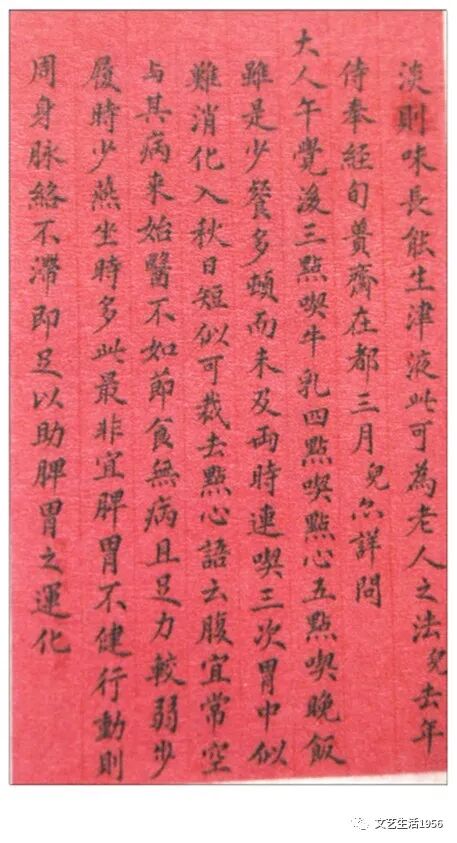 淡則味長能生津液此可為老人之法兒去年
侍奉經旬貫齋在都三月兒亦詳問
大人午覺後三點喫牛乳四點喫點心五點喫晚飯
雖是少餐多頓而未及兩時連喫三次胃中似
難消化入秋日短似可裁去點心語云腹宜常空
与其病来始醫不如節食無病且足力較弱步
履時少燕坐時多此最非宜脾胃不健行動則
周身脉絡不滯即足以助脾胃之運化
文艺生活1956